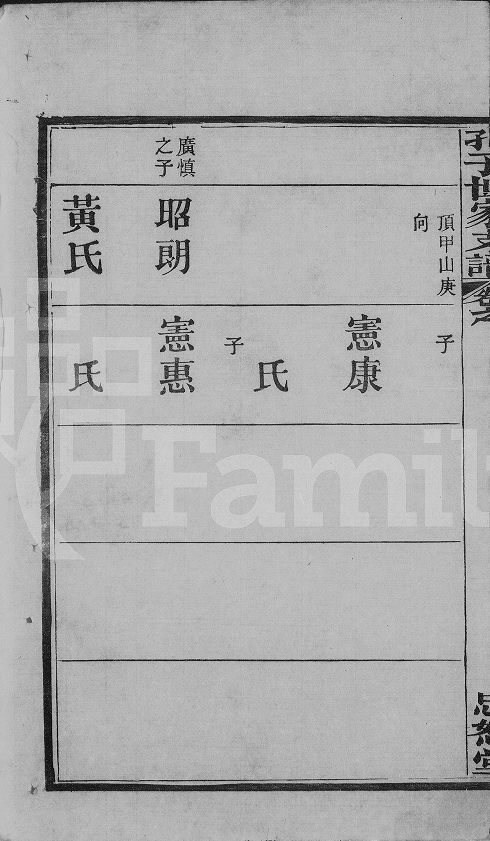 孔子世家支譜
頂甲山庚
向
子
憲康
氏
子
廣慎
之子
昭朗
憲惠
黃氏
氏
Famil